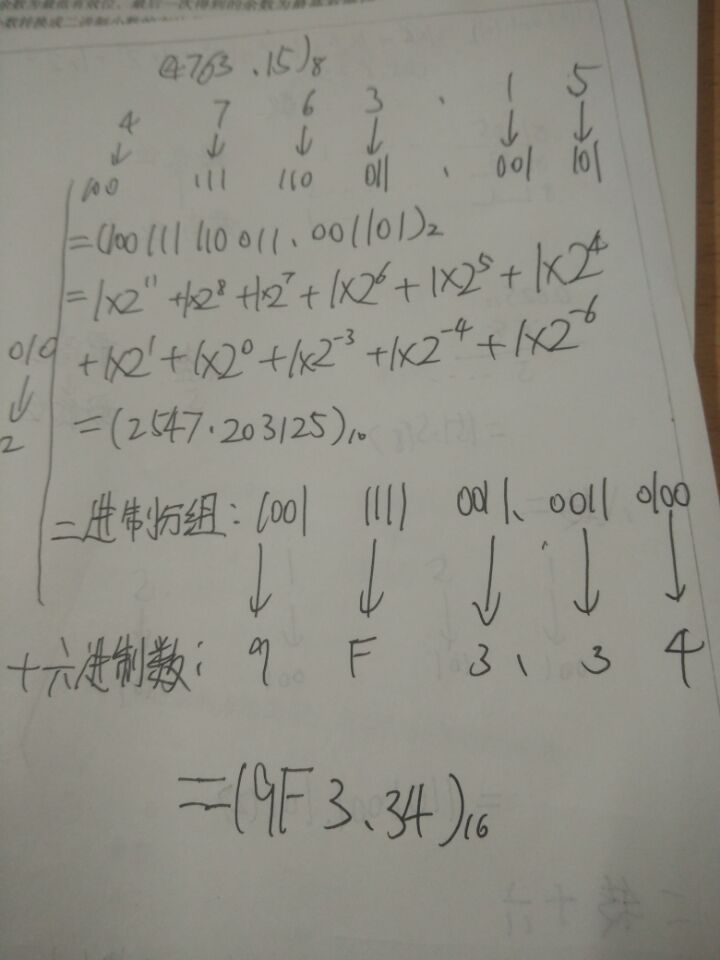 (4763.15)₈
4 7 6 3 . 1 5
↓ ↓ ↓ ↓ ↓ ↓
100 111 110 011 . 001 101
=(100111110011.001101)₂
=1×2¹¹+1×2⁸+1×2⁷+1×2⁶+1×2⁵+1×2⁴
+1×2¹+1×2⁰+1×2⁻³+1×2⁻⁴+1×2⁻⁶
010
↓
2
=(2547.203125)₁₀
二进制分组: 1001 1111 0011. 0011 0100
↓ ↓ ↓ ↓ ↓
十六进制数: 9 F 3 . 3 4
=(9F3.34)₁₆